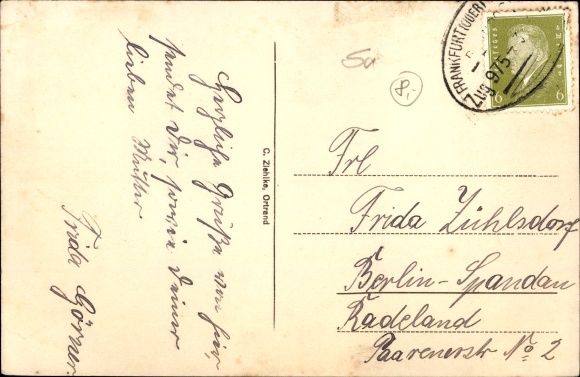 Herzliche Grüße von hier
sendet Dir, sowie Deiner
lieben Mutter
Frida Görner.
C. Ziehlke, Ortrand
Frl
Frida Zühlsdorf
Berlin-Spandau
Radeland
Paarenerstr No 2
FRANKFURT (ODER)
ZUG 975
6 6
50
8,-